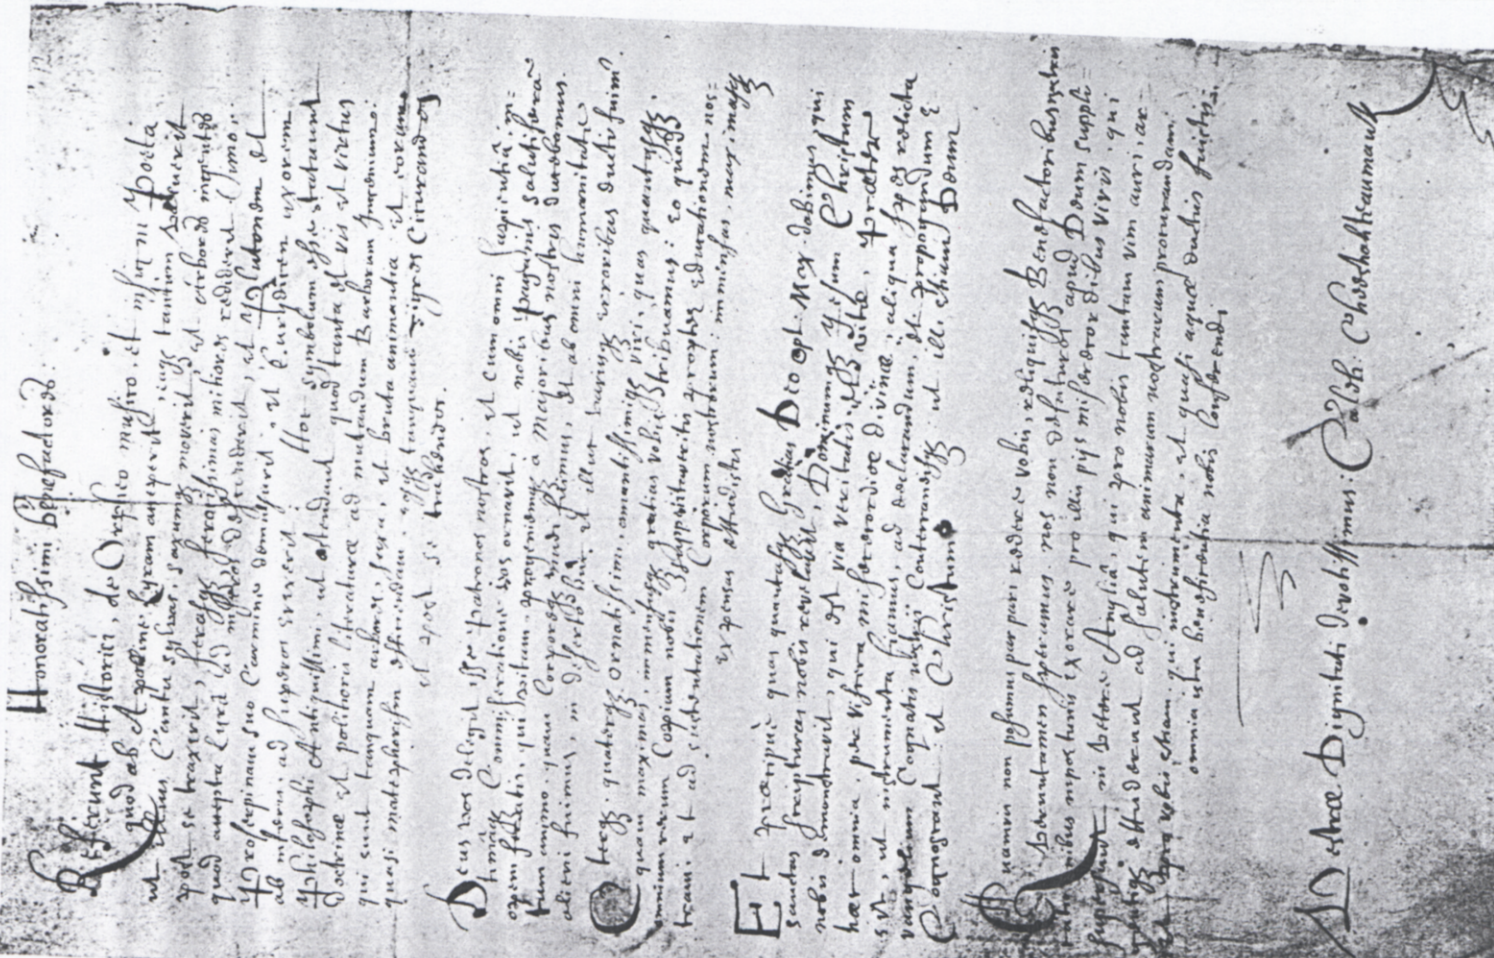 Honoratissimi Benefactores:
Referunt Historici, de Orpheo musico, et insigni Poeta
quod ab Apolline Lyram acceperit, eaque tantum valuerit
ut illius Cantu sylvas, saxaque moverit, et verborum
post se traxerit, ferasque ferocissimas mitiores redderet (imo..
quod accepta Lyra ad inferos descenderit, et Plutonem et
Proserpinam suo Carmine demulserit, et Eurydicen uxorem
ab inferis ad superos evexerit: Hoc symbolum esse statuunt
Philosophi Antiquissimi, ut ostendant quod tanta est vis et virtus
doctrinae et politioris literaturae ad mutandum Barbarum Ingenium:
qui sunt tanquam arbores, saxa, et bruta animantia et eorum
quasi metamorphosin efficiendam, eosque tanquam Tigres Cicurandos
et post se trahendos.
Deus vos delegit, esse patronos nostros, et cum omni sapientia in-
timaque Commiseratione vos ornavit, ut nobis paganis salutiferam
opem feratis, qui vitam progeniemque a Majoribus nostris ducebamus
tum animo quam Corpore nudi fuimus, et ab omni humanitate
alieni fuimus, in deserto huc et illuc variisque erroribus ducti fuimus
O terque quaterque ornatissimi, amantissimique viri, quas quantasque
quam maximas, immensasque gratias vobis tribuamus: eo quod
omnium rerum Copiam nobis suppeditaveritis propter educationem nos-
tram: et ad sustentationem Corporum nostrorum: immensas, maximasque
expensas effudistis
Et praecipue quas quantasque Gratias Deo Opt. Max. dabimus, qui
sanctas scripturas nobis revelavit, Dominumque Jesum Christum
nobis demonstravit, qui est via veritatis et vitae, Praeter
haec omnia, per viscera misericordiae divinae, aliqua spes relicta
sit, ut instrumenta fiamus, ad declarandum, et propagandum E-
vangelium Cognatis nostris Conterraneisque: ut illi etiam Deum
Cognoscant: et Christum.
Quamvis non possumus par pari reddere vobis, reliquisque Benefactoribus nostris
attamen speramus, nos non defuturos, apud Deum suppli-
cationibus importunis exorare pro illis piis misericordibus viris qui
supersunt in vetere Anglia, qui pro nobis tantam vim auri, ar-
gentique effuderunt ad salutem animarum nostrarum procurandam:
et pro vobis etiam, qui instrumenta, et quasi aquae ductus fuistis
omnia ista beneficentia nobis conferendi
Vestrae Dignitati devotissimus: Caleb: Cheeshahteaumauk